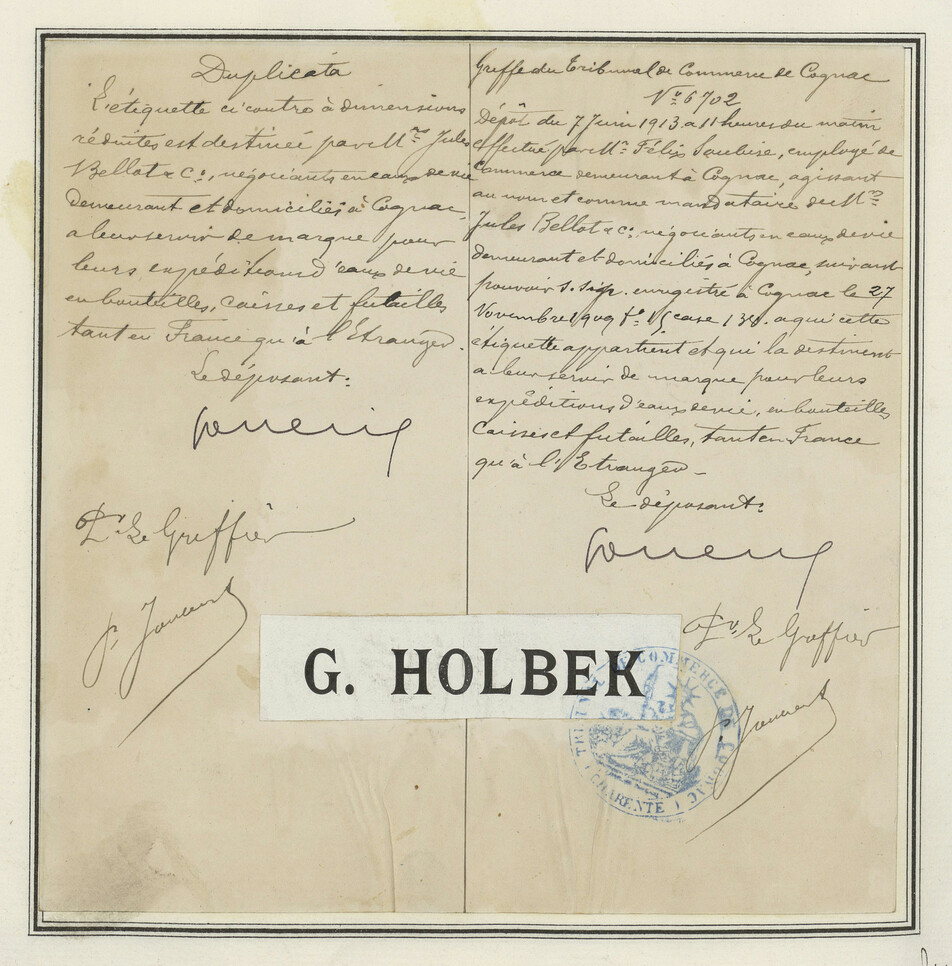 Duplicata
L'étiquette ci contre à dimensions
réduites est destinée par Mrs Jules
Bellot & Co, négociants en eaux de vie
demeurant et domiciliés à Cognac,
a leur servir de marque pour
leurs expéditions d'eaux de vie
en bouteilles, caisses et futailles
tant en France qu'à l'Etranger.
Le déposant:
Pr Le Greffier
Greffe du Tribunal de Commerce de Cognac
No 6702
Dépôt du 7 Juin 1913 a 11 heures du matin
effectué par Mr Félix Soubise, employé de
Commerce demeurant à Cognac, agissant
au nom et comme mandataire de Mrs
Jules Bellot & Co, négociants en eaux de vie
demeurant et domiciliés à Cognac, suivant
pouvoir s. sig. enregistré à Cognac le 27
Novembre 1909 fo case 138. a qui cette
étiquette appartient et qui la destinent
a leur servir de marque pour leurs
expéditions d'eaux de vie, en bouteilles
Caisses et futailles, tant en France
qu'à l'Etranger
Le déposant:
Pr Le Greffier
G. HOLBEK
TRIBUNAL DE COMMERCE DE COGNAC
(CHARENTE)